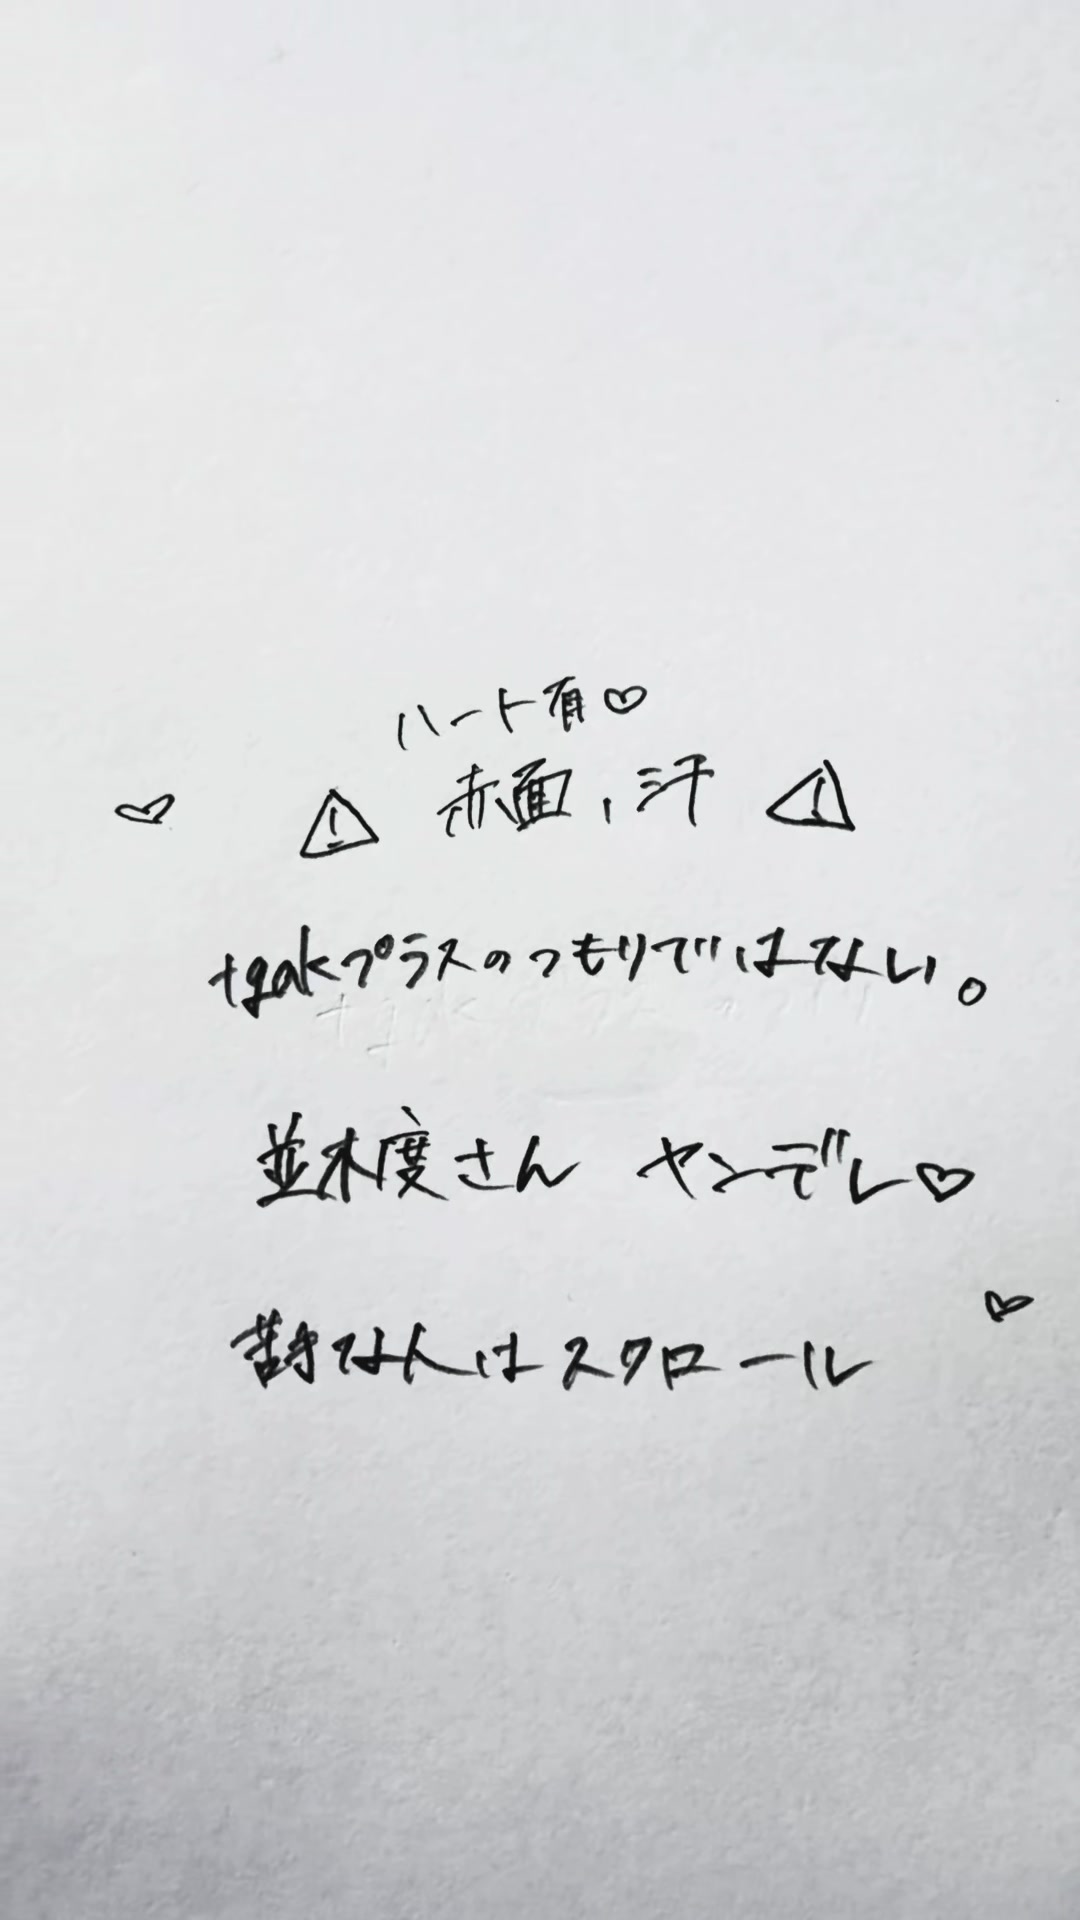 ハート有♡
⚠ 赤面、汗 ⚠
+gakプラスのつもりではない。
並木度さん ヤンデレ♡
苦手な人はスクロール